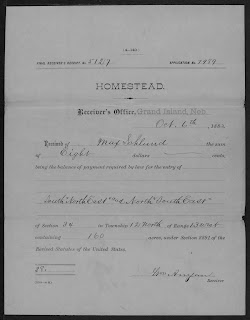 (4-140)
FINAL RECEIVER'S RECEIPT No. 5127
APPLICATION No.
HOMESTEAD.
Receiver's Office, Grand Island, Neb
Oct. 6th, 188
Received of Max the sum
of Eight dollars cents,
being the balance of payment required by law for the entry of
South North East and North South East
of Section 34 in Township 12 North of Range
containing 160 acres, under Section 2291 of the
Revised Statutes of the United States.
$8
Receiver